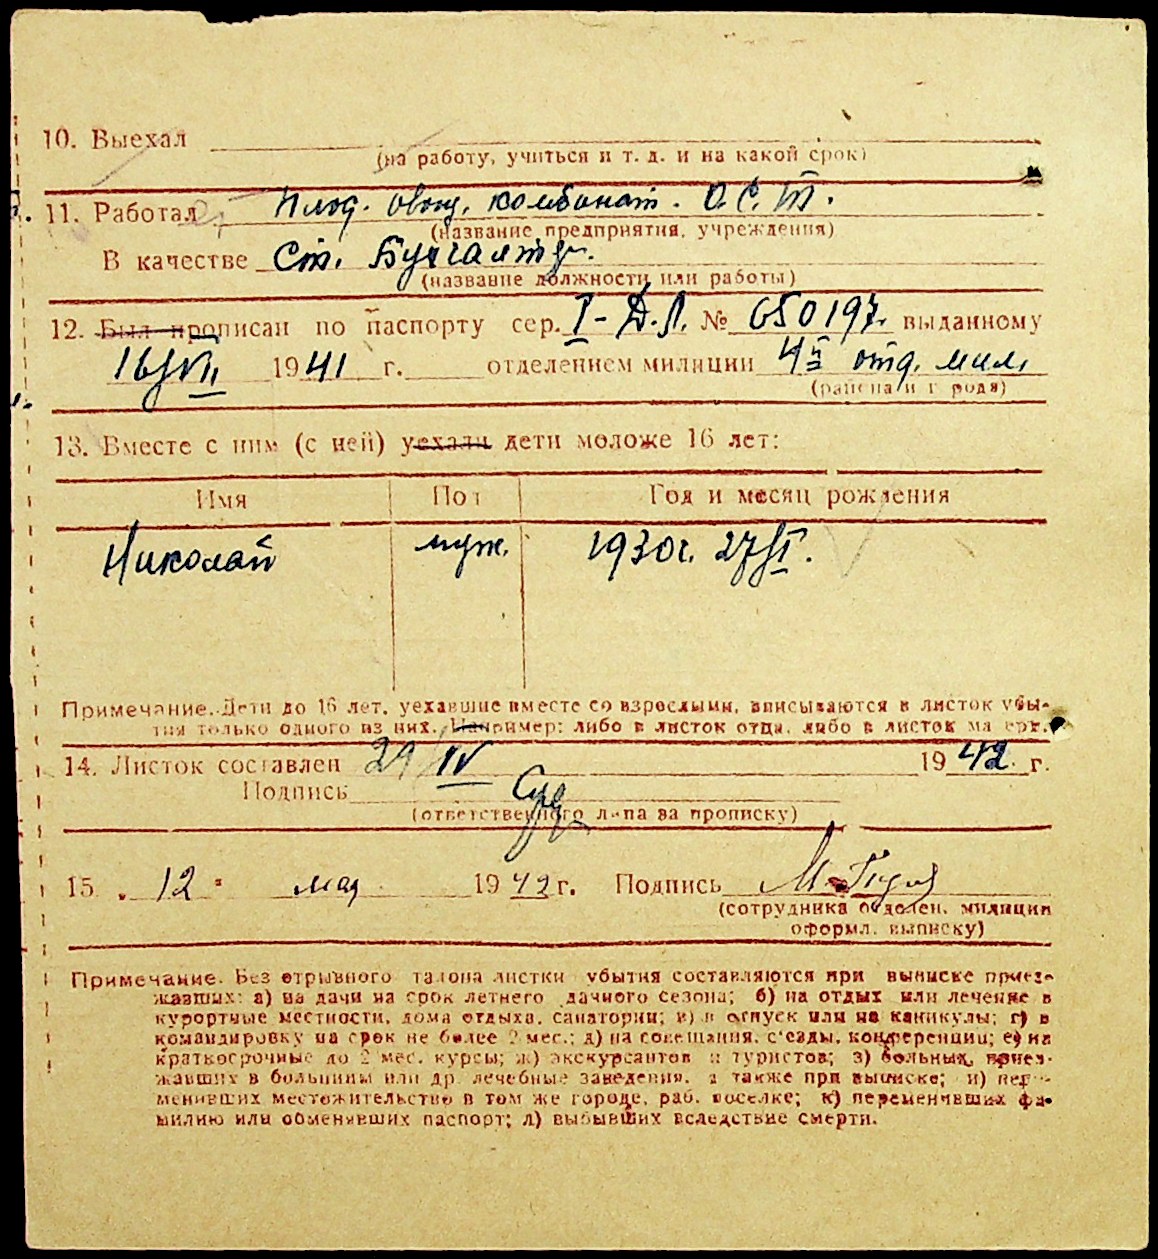 10. Выехал
(на работу, учиться и т. д. и на какой срок)
11. Работал Плод. овощ. комбинат. О.С.Т.
(название предприятия, учреждения)
В качестве Ст. Бухгалтер.
(название должности или работы)
12. Был прописан по паспорту сер. I-Д.Л. № 650197. выданному
16/VII 1941 г. отделением милиции 4й отд. мил.
(района и города)
13. Вместе с ним (с ней) уехали дети моложе 16 лет:
Имя Пол Год и месяц рождения
Николай муж. 1930г. 27/VI.
Примечание. Дети до 16 лет, уехавшие вместе со взрослыми, вписываются в листок убы-
тия только одного из них. Например: либо в листок отца, либо в листок матери.
14. Листок составлен 29/IV 1942 г.
Подпись
(ответственного лица за прописку)
15. 12 " мая 1942 г. Подпись
(сотрудника отделен. милиции
оформл. выписку)
Примечание. Без отрывного талона листки убытия составляются при выписке приез-
жавших: а) на дачи на срок летнего дачного сезона; б) на отдых или лечение в
курортные местности, дома отдыха, санатории; в) в отпуск или на каникулы; г) в
командировку на срок не более 2 мес.; д) на совещания, с'езды, конференции; е) на
краткосрочные до 2 мес. курсы; ж) экскурсантов и туристов; з) больных, приез-
жавших в больницы или др. лечебные заведения, а также при выписке; и) пере-
менивших местожительство в том же городе, раб. поселке; к) переменивших фа-
милию или обменявших паспорт; л) выбывших вследствие смерти.